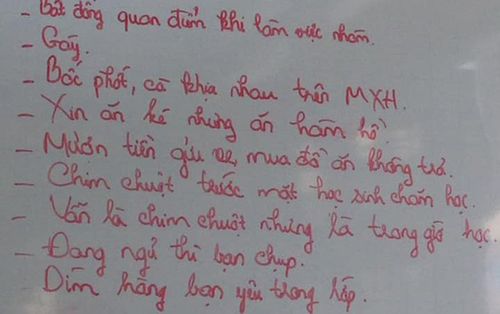 - Bất đồng quan điểm khi làm việc nhóm.
- Gay.
- Bốc phốt, cà khịa nhau trên MXH.
- Xin ăn ké nhưng ăn hăm hồ
- Mượn tiền gửi xe, mua đồ ăn không trả.
- Chim chuột trước mặt học sinh chăm học.
- Vẫn là chim chuột nhưng là trong giờ học.
- Đang ngủ thì bạn chụp.
- Dìm hàng bạn yêu trong lớp.